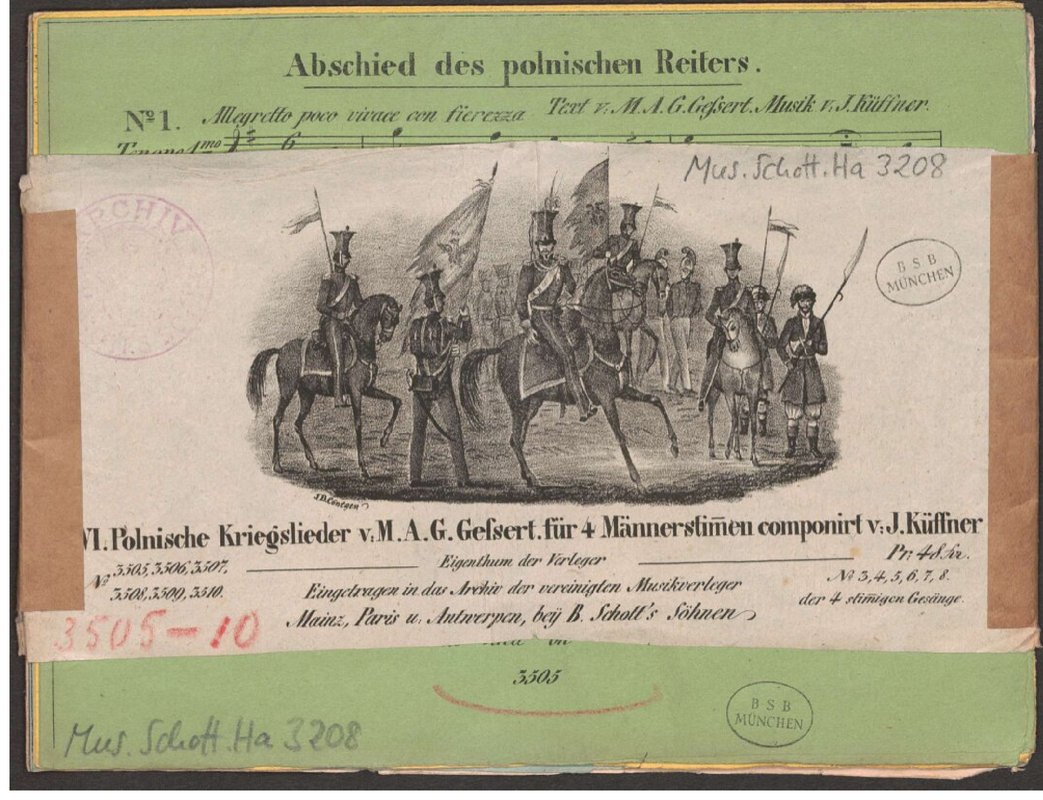 Abschied des polnischen Reiters.
Nº 1. Allegretto poco vivace con fierezza Text v. M. A. G. Geſsert. Musik v. J. Küffner.
Tenore 1mo
Mus. Schott. Ha 3208
ARCHIV
B S B
MÜNCHEN
VI. Polnische Kriegslieder v: M. A. G. Geſsert. für 4 Männerstim̅en componirt v: J. Küffner
Eigenthum der Verleger
Pr: 48 kr.
Nº 3505, 3506, 3507,
3508, 3509, 3510.
Eingetragen in das Archiv der vereinigten Musikverleger
Nº 3, 4, 5, 6, 7, 8.
der 4 stim̅igen Gesänge.
Mainz, Paris u. Antwerpen, beÿ B. Schott's Söhnen
3505-10
3505
B S B
MÜNCHEN
Mus. Schott. Ha 3208